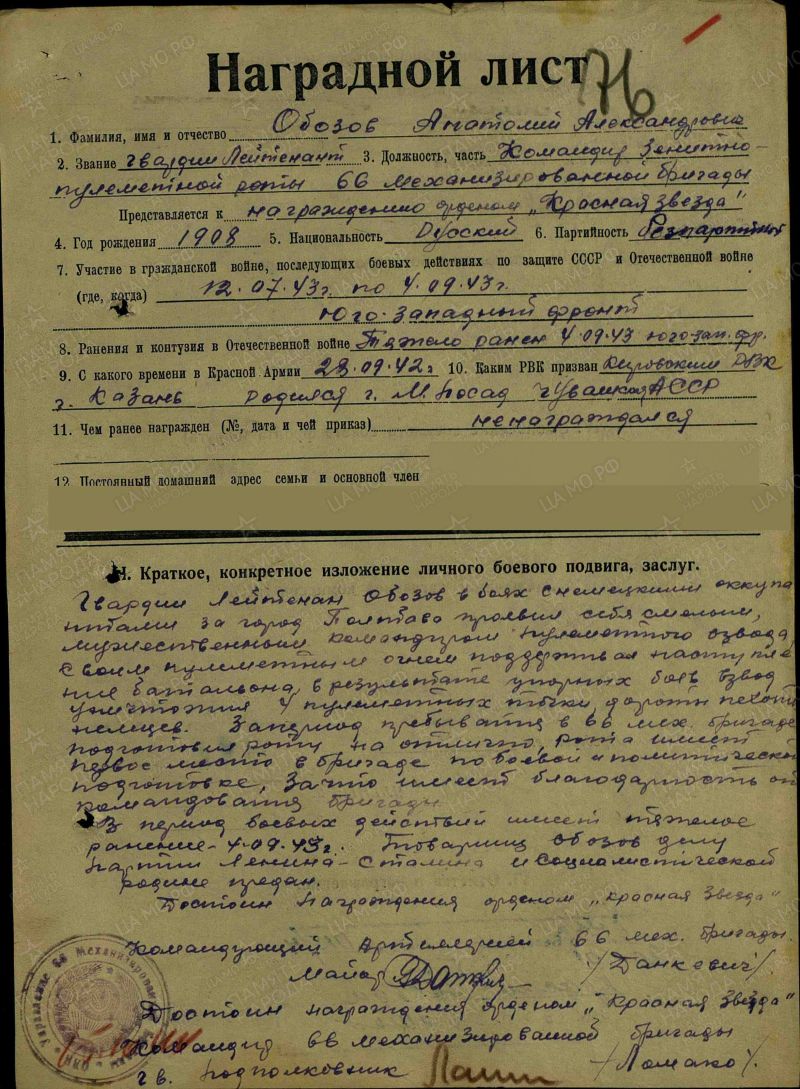 Наградной лист
76
1. Фамилия, имя и отчество Обозов Анатолий Александрович
2. Звание гвардии Лейтенант 3. Должность, часть Командир зенитно-
пулеметной роты 66 механизированной бригады
Представляется к награждению орденом „Красная звезда"
4. Год рождения 1908 5. Национальность Русский 6. Партийность Безпартийный
7. Участие в гражданской войне, последующих боевых действиях по защите СССР и Отечественной войне
(где, когда) 12.07.43г. по 4.09.43г.
Юго-западный фронт
8. Ранения и контузия в Отечественной войне Тяжело ранен 4.09.43 юго-зап. фр.
9. С какого времени в Красной Армии 28.09.42г 10. Каким РВК призван Кировским РВК
г. Казань родился г. М. Посад Чувашская АССР
11. Чем ранее награжден (№, дата и чей приказ) ненаграждался
12. Постоянный домашний адрес семьи и основной член
I. Краткое, конкретное изложение личного боевого подвига, заслуг.
Гвардии Лейтенан Обозов в боях с немецкими оккупа
нтами за город Полтава проявил себя смелым,
мужественным командиром пулеметного взвода
своим пулеметным огнем поддерживая наступле
ние батальона, в результате упорных боев взвод
уничтожил 4 пулеметных точки, до роты пехоты
немцев. За период пребывания в 66 мех. бригаде
подготовил роту на отлично, рота имеет
первое место в бригаде по боевой и политической
подготовке, за что имеет благодарность от
командования бригады
В период боевых действий имеет тяжелое
ранение - 4.09.43г. Товарищ Обозов делу
партии Ленина-Сталина и социалистической
родине предан.
Достоин награждения орденом „Красная Звезда"
Командующий артиллерией 66 мех. бригады
Майор /Данкевич/
Достоин награждения орденом „Красная Звезда"
Командир 66 механизированной бригады
гв. подполковник /Ломако/